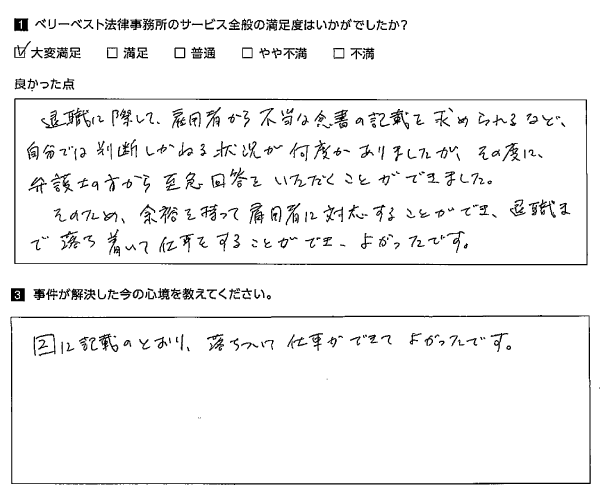 1 ベリーベスト法律事務所のサービス全般の満足度はいかがでしたか?
☑ 大変満足 □ 満足 □ 普通 □ やや不満 □ 不満
良かった点
退職に際して、雇用者から不当な念書の記載を求められるなど、
自分では判断しかねる状況が何度かありましたが、その度に、
弁護士の方から至急回答をいただくことができました。
そのため、余裕を持って雇用者に対応することができ、退職ま
で落ち着いて仕事をすることができ、よかったです。
3 事件が解決した今の心境を教えてください。
2に記載のとおり、落ちついて仕事ができてよかったです。